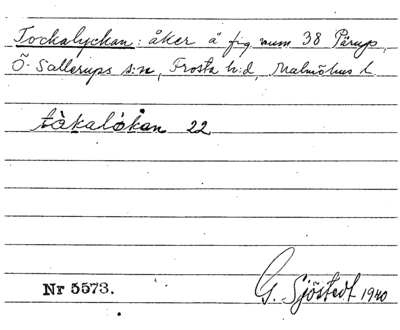 Tockalyckan: åker å fig num 38 Pärup,
Ö. Sallerups s:n, Frosta h:d, Malmöhus l.
tàkalỏkan 22
Nr 5573.
G. Sjöstedt 1940